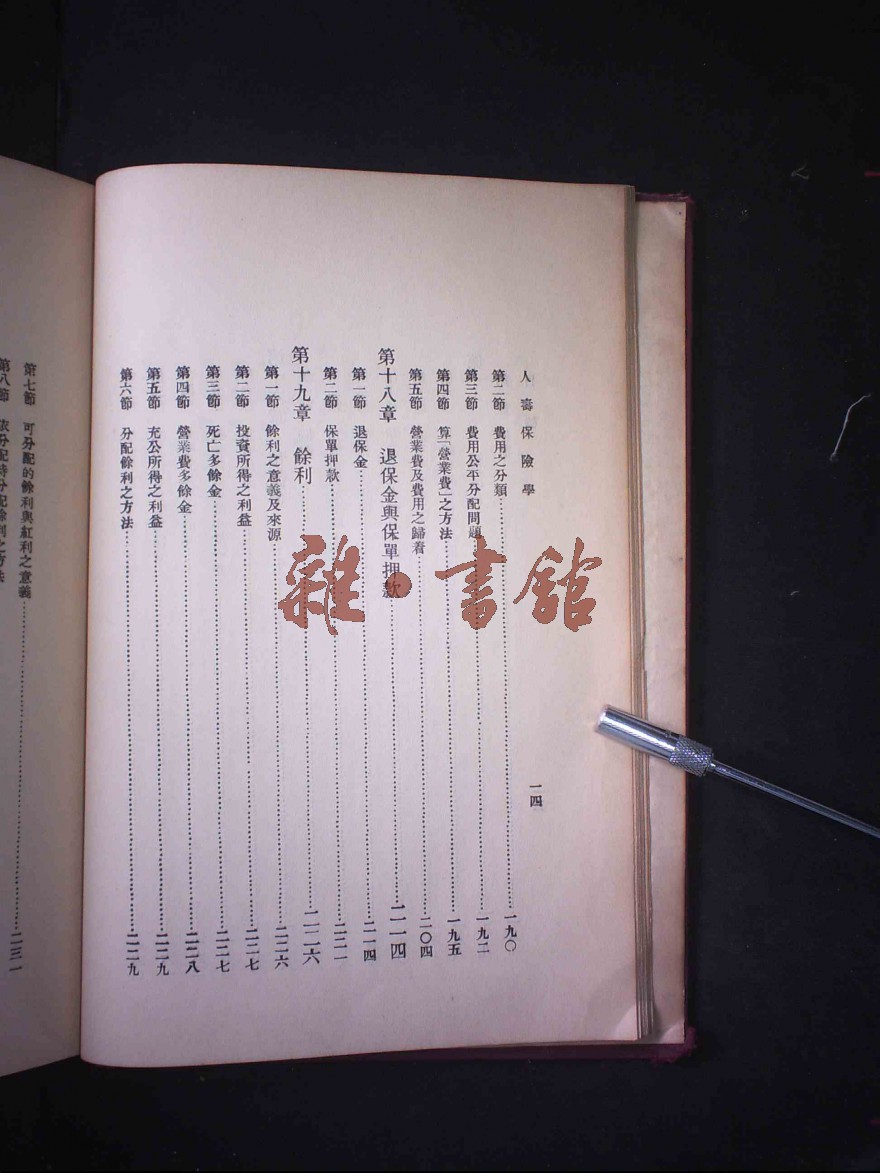 人壽保險學
一四
第二節 費用之分類 一九〇
第三節 費用公平分配問題 一九二
第四節 算「營業費」之方法 一九五
第五節 營業費及費用之歸着 二〇四
第十八章 退保金與保單押款 二一四
第一節 退保金 二一四
第二節 保單押款 二二一
第十九章 餘利 二二六
第一節 餘利之意義及來源 二二六
第二節 投資所得之利益 二二七
第三節 死亡多餘金 二二七
第四節 營業費多餘金 二二八
第五節 充公所得之利益 二二九
第六節 分配餘利之方法 二二九
第七節 可分配的餘利與紅利之意義 二三一
第八節 依分配時分配餘利之方法
雜·書館